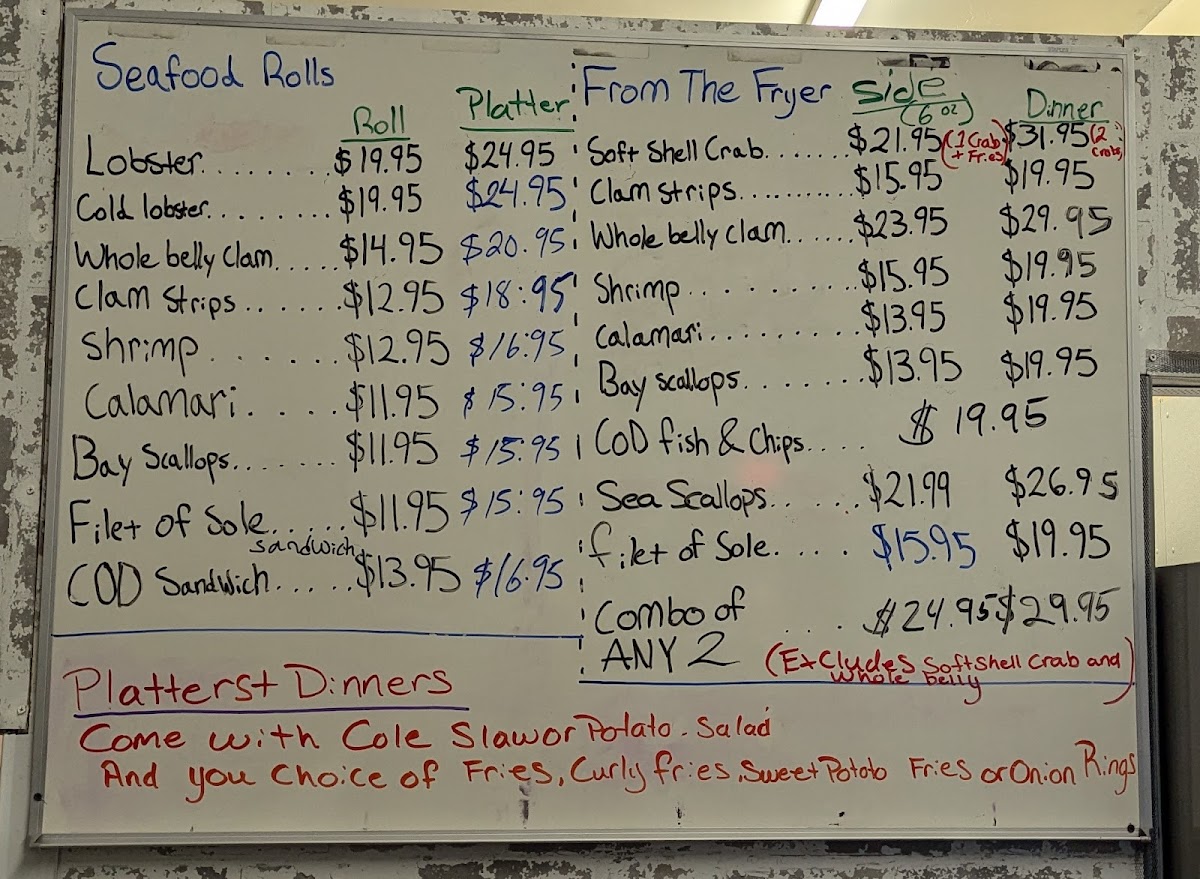 Seafood Rolls
Roll Platter
Lobster......... $19.95 $24.95
Cold lobster......... $19.95 $24.95
Whole belly Clam..... $14.95 $20.95
Clam Strips...... $12.95 $18.95
Shrimp....... $12.95 $16.95
Calamari..... $11.95 $15.95
Bay Scallops........ $11.95 $15.95
Filet of Sole...... $11.95 $15.95
sandwich
COD Sandwich...... $13.95 $16.95
From The Fryer Side Dinner
(6 oz)
Soft Shell Crab....... $21.95 (1 Crab + Fries) $31.95 (2 Crabs)
Clam strips........... $15.95 $19.95
Whole belly clam...... $23.95 $29.95
Shrimp.......... $15.95 $19.95
Calamari.......... $13.95 $19.95
Bay scallops........ $13.95 $19.95
COD fish & Chips..... $19.95
Sea Scallops....... $21.99 $26.95
filet of Sole..... $15.95 $19.95
Combo of
ANY 2 .... $24.95 $29.95
(Excludes Softshell Crab and
Whole belly)
Platters + Dinners
Come with Cole Slaw or Potato. Salad
And you Choice of Fries, Curly fries, Sweet Potato Fries or Onion Rings